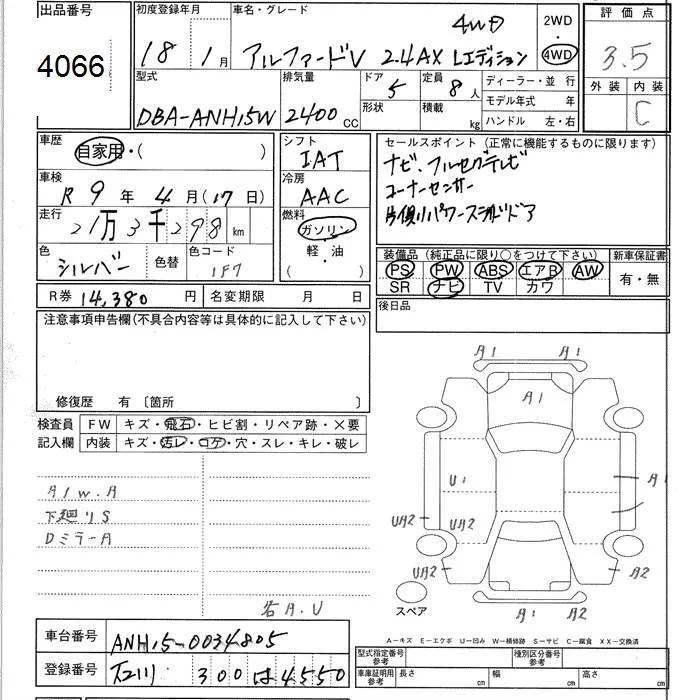 出品番号
4066
初度登録年月
18年 1月
車名・グレード
4WD
アルファードV 2.4AX Lエディション
2WD
4WD
評価点
3.5
外装 内装
C
型式
DBA-ANH15W
排気量
2400 cc
ドア 5
形状
定員 8人
積載 kg
ディーラー・並行
モデル年式 年
ハンドル 左・右
車歴
自家用・( )
車検
R 9年 4月(17日)
走行
21万3千298 km
色
シルバー
色替
色コード
1F7
シフト
IAT
冷房
AAC
燃料
ガソリン
軽・油
( )
セールスポイント(正常に機能するものに限ります)
ナビ、フルセグテレビ
コーナーセンサー
片側パワースライドドア
装備品(純正品に限り○をつけて下さい)
PS PW ABS エアB AW
SR ナビ TV カワ
新車保証書
有・無
R券 14,380 円
名変期限 月 日
後日品
注意事項申告欄(不具合内容等は具体的に記入して下さい)
修復歴 有〔箇所 〕
検査員
記入欄
FW キズ・飛石・ヒビ割・リペア跡・×要
内装 キズ・汚レ・コゲ・穴・スレ・キレ・破レ
A/W.A
下廻りS
Dミラー A
各A.U
A1 A1
A1
U1
A1
UA2 UA2
UA2 A2
A1 A2
スペア
A-キズ E-エクボ U-凹み W-補修跡 S-サビ C-腐食 XX-交換済
車台番号
ANH15-0034805
登録番号
石川 300 は 4550
型式指定番号
参考
種別区分番号
参考
車庫証明用
参考
長さ cm
幅 cm
高さ cm